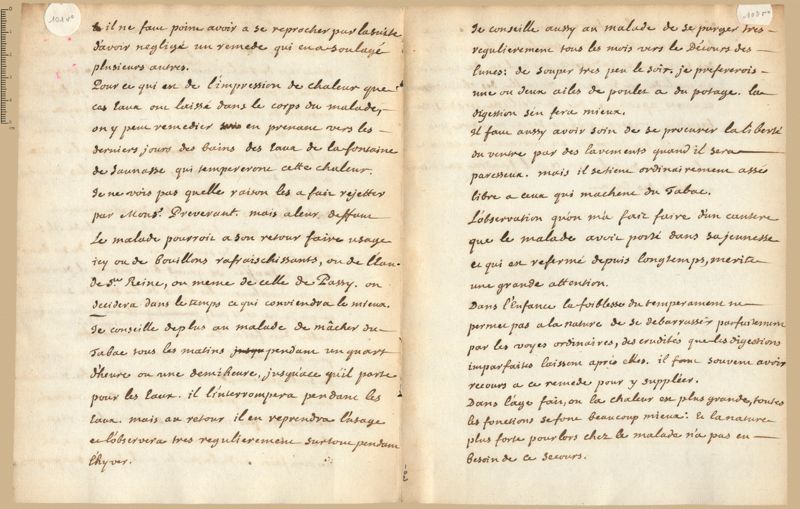 101 vo
il ne faut point avoir a se reprocher par la suitte
d'avoir negligé un remede qui en a soulagé
plusieurs autres.
Pour ce qui est de l'impression de chaleur que
ces Eaux ont laissé dans le corps du malade,
on y peut remedier en prenant vers les
derniers jours des bains des Eaux de la fontaine
de Jaunasse qui tempereront cette chaleur.
Je ne vois pas quelle raison les a fait rejetter
par Monsr. Preverant. mais a leur deffaut
Le malade pourroit a son retour faire usage
icy ou de bouillons rafraischissants, ou de l'Eau
de Ste. Reine, ou meme de celle de Passy. on
decidera dans le temps ce qui conviendra le mieux.
Je conseille de plus au malade de mâcher du
Tabac tous les matins jusqu pendant un quart
d'heure ou une demiheure, jusqu'a ce qu'il parte
pour les Eaux. il l'interrompera pendant les
Eaux. mais au retour il en reprendra l'usage
et l'observera tres regulierement surtout pendant
l'hyver.
102
Je conseille aussy au malade de se purger tres
regulierement tous les mois vers le Décours des
lunes: de souper tres peu le soir. je prefererois
une ou deux ailes de poulet a du potage. la
digestion s'en fera mieux.
Il faut aussy avoir soin de se procurer la liberté
du ventre par des lavements quand il sera
paresseux. mais il se tient ordinairement assés
libre a ceux qui machent du Tabac.
L'observation qu'on m'a fait faire d'un cautere
que le malade avoit porté dans sa jeunesse
et qui est refermé depuis longtemps, merite
une grande attention.
Dans l'Enfance la foiblesse du temperament ne
permet pas a la nature de se debarrasser parfaitement
par les voyes ordinaires, des crudités que les digestions
imparfaites laissent aprés elles. il faut souvent avoir
recours a ce remede pour y suppléer.
Dans l'âge fait, ou la chaleur est plus grande, toutes
les fonctions se font beaucoup mieux: Et la nature
plus forte pour lors chez le malade n'a pas eu
besoin de ce secours.